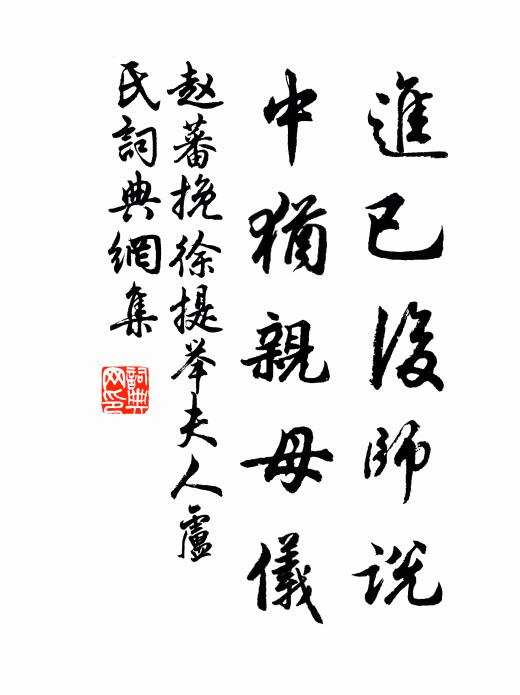 進已後師說
中猶親母儀
赵蕃挽徐提举夫人盧
氏詞典網集
詞典
网印